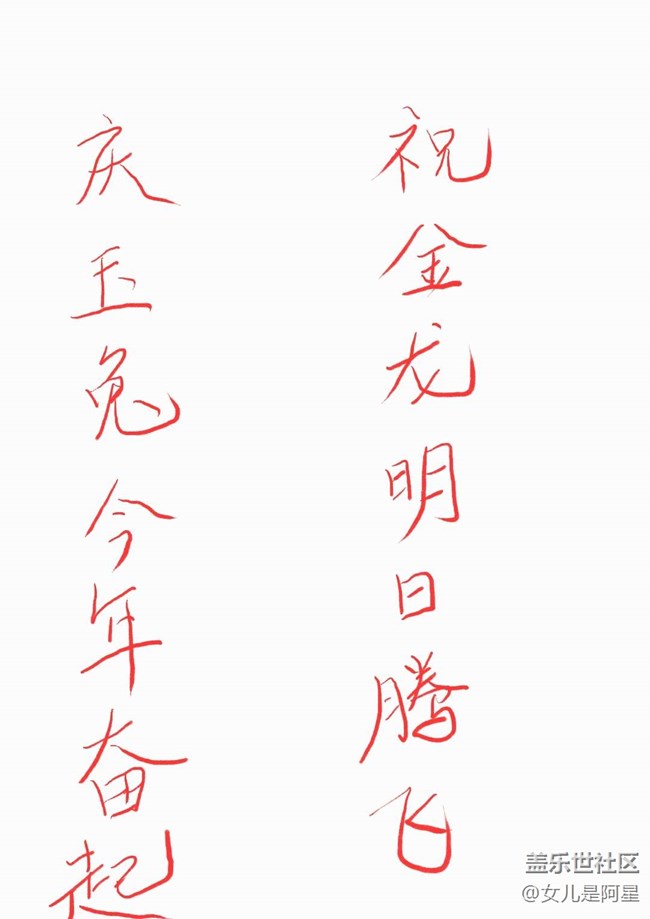 祝金龙明日腾飞
庆玉兔今年奋起
盖乐世社区
@女儿是阿星